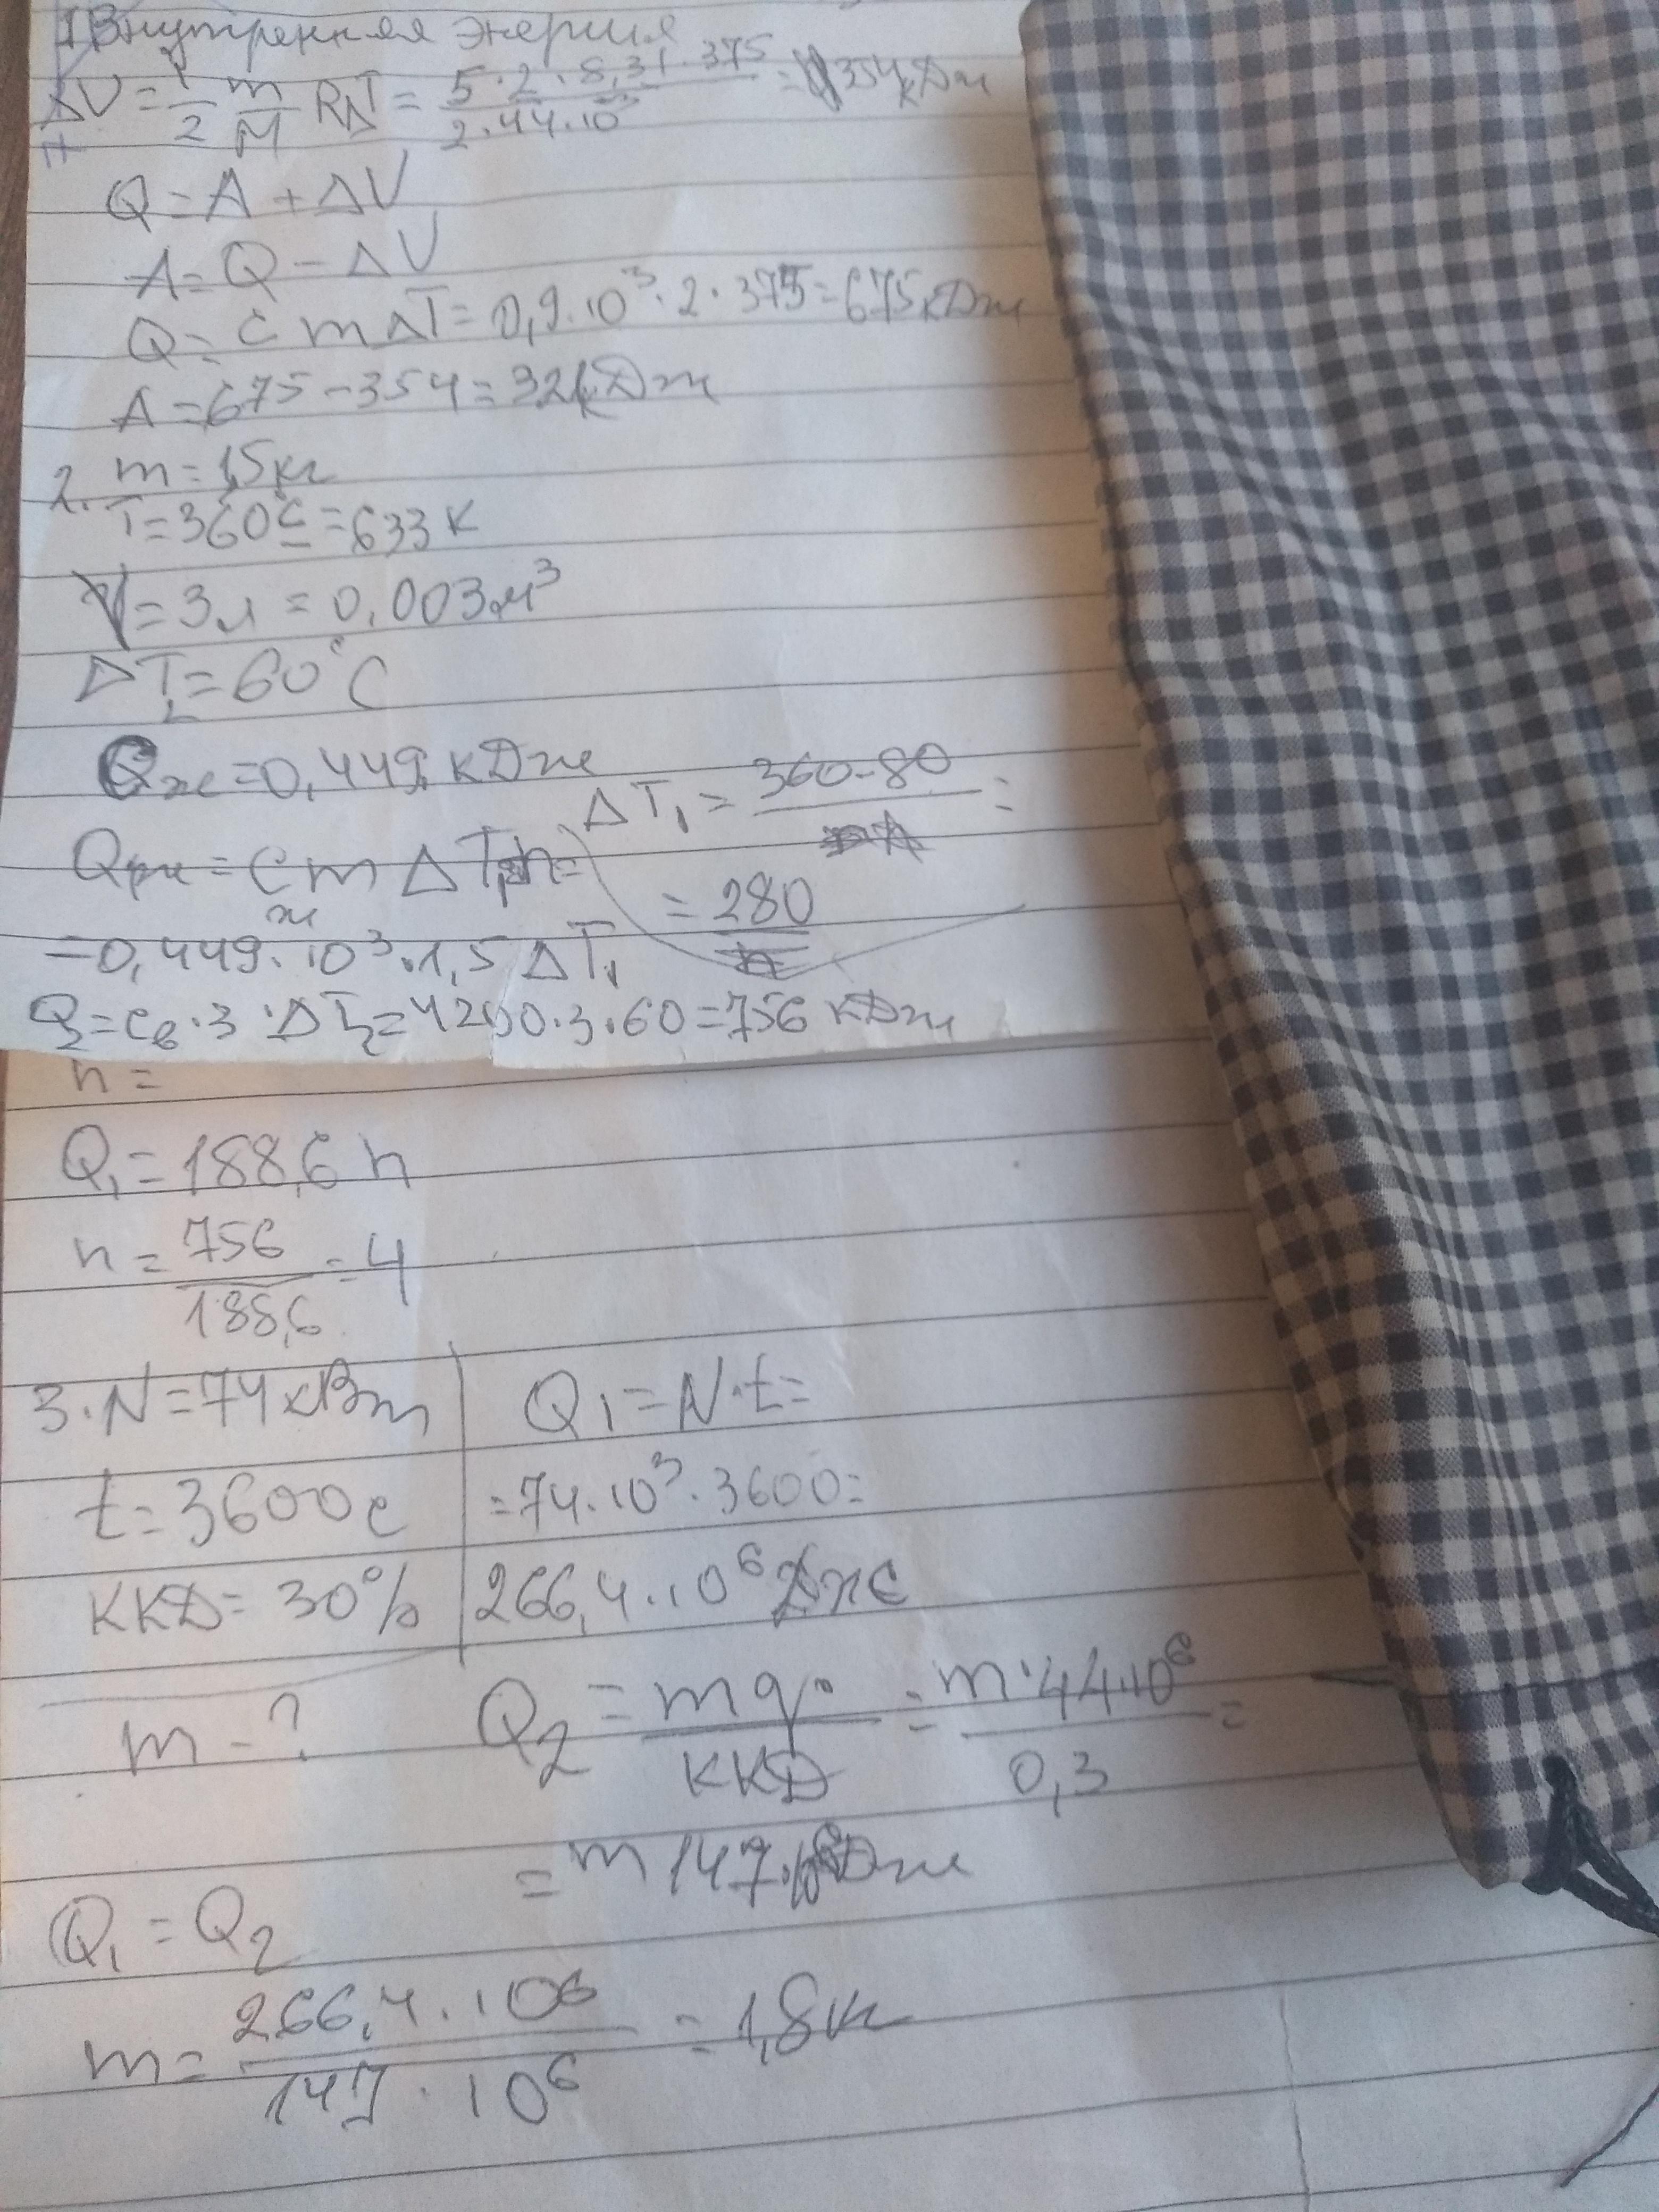 1) Внутренняя энергия
ΔU = i/2 m/M RΔT = 5·2·8,31·375 / 2·44·10⁻³ = 354 кДж
Q = A + ΔU
A = Q − ΔU
Q = c m ΔT = 0,9·10³·2·375 = 675 кДж
A = 675 − 354 = 321 кДж
2. m = 1,5 кг
T = 360°C = 633 K
V = 3 л = 0,003 м³
ΔT₂ = 60°C
Cж = 0,449 кДж
ΔT₁ = 360-80 =
Qрж = Cж m ΔT₁ =
= 280
= 0,449·10³·1,5 ΔT₁
Q₂ = Cв·3·ΔT₂ = 4200·3·60 = 756 кДж
n =
Q₁ = 188,6 n
n = 756 / 188,6 = 4
3. N = 74 кВт
Q₁ = N·t =
t = 3600 с
= 74·10³·3600 =
ККД = 30%
266,4·10⁶ Дж
m - ?
Q₂ = mq / ККД = m·44·10⁶ / 0,3 =
= m 147·10⁶ Дж
Q₁ = Q₂
m = 266,4·10⁶ / 147·10⁶ = 1,8 кг